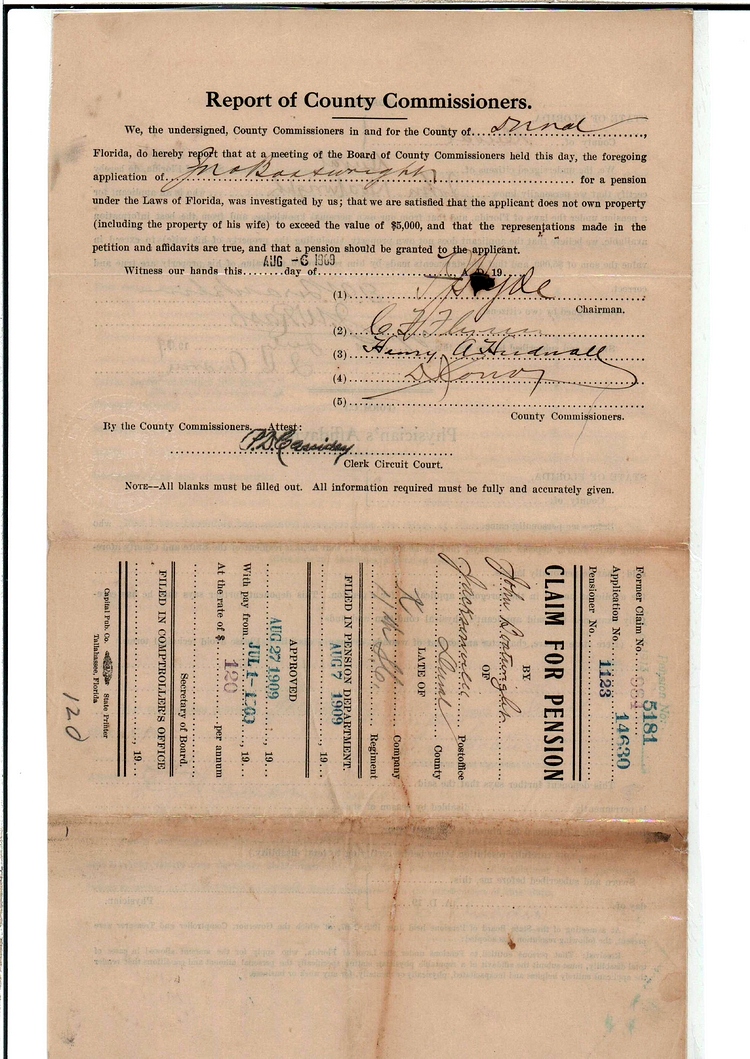 Report of County Commissioners.
We, the undersigned, County Commissioners in and for the County of Duval,
Florida, do hereby report that at a meeting of the Board of County Commissioners held this day, the foregoing
application of Jno Boatwright for a pension
under the Laws of Florida, was investigated by us; that we are satisfied that the applicant does not own property
(including the property of his wife) to exceed the value of $5,000, and that the representations made in the
petition and affidavits are true, and that a pension should be granted to the applicant.
Witness our hands this AUG -6 1909 day of A. D. 19
(1) Hyde
Chairman.
(2) C. H.
(3) Henry A Hudnall
(4)
(5)
County Commissioners.
By the County Commissioners. Attest:
P.D. Cassidey
Clerk Circuit Court.
NOTE--All blanks must be filled out. All information required must be fully and accurately given.
Pension No.
Former Claim No. 5181
Application No. 14630
Pensioner No. 1123
CLAIM FOR PENSION
BY
John Boatwright
OF
Jacksonville Postoffice
Duval County
LATE OF
K Company
11th Regiment
FILED IN PENSION DEPARTMENT.
AUG 7 1909, 19
APPROVED
AUG 27 1909, 19
With pay from JUL 1-1909, 19
At the rate of $ 120 per annum
Secretary of Board.
FILED IN COMPTROLLER'S OFFICE
, 19
Capital Pub. Co. State Printer
Tallahassee, Florida
120